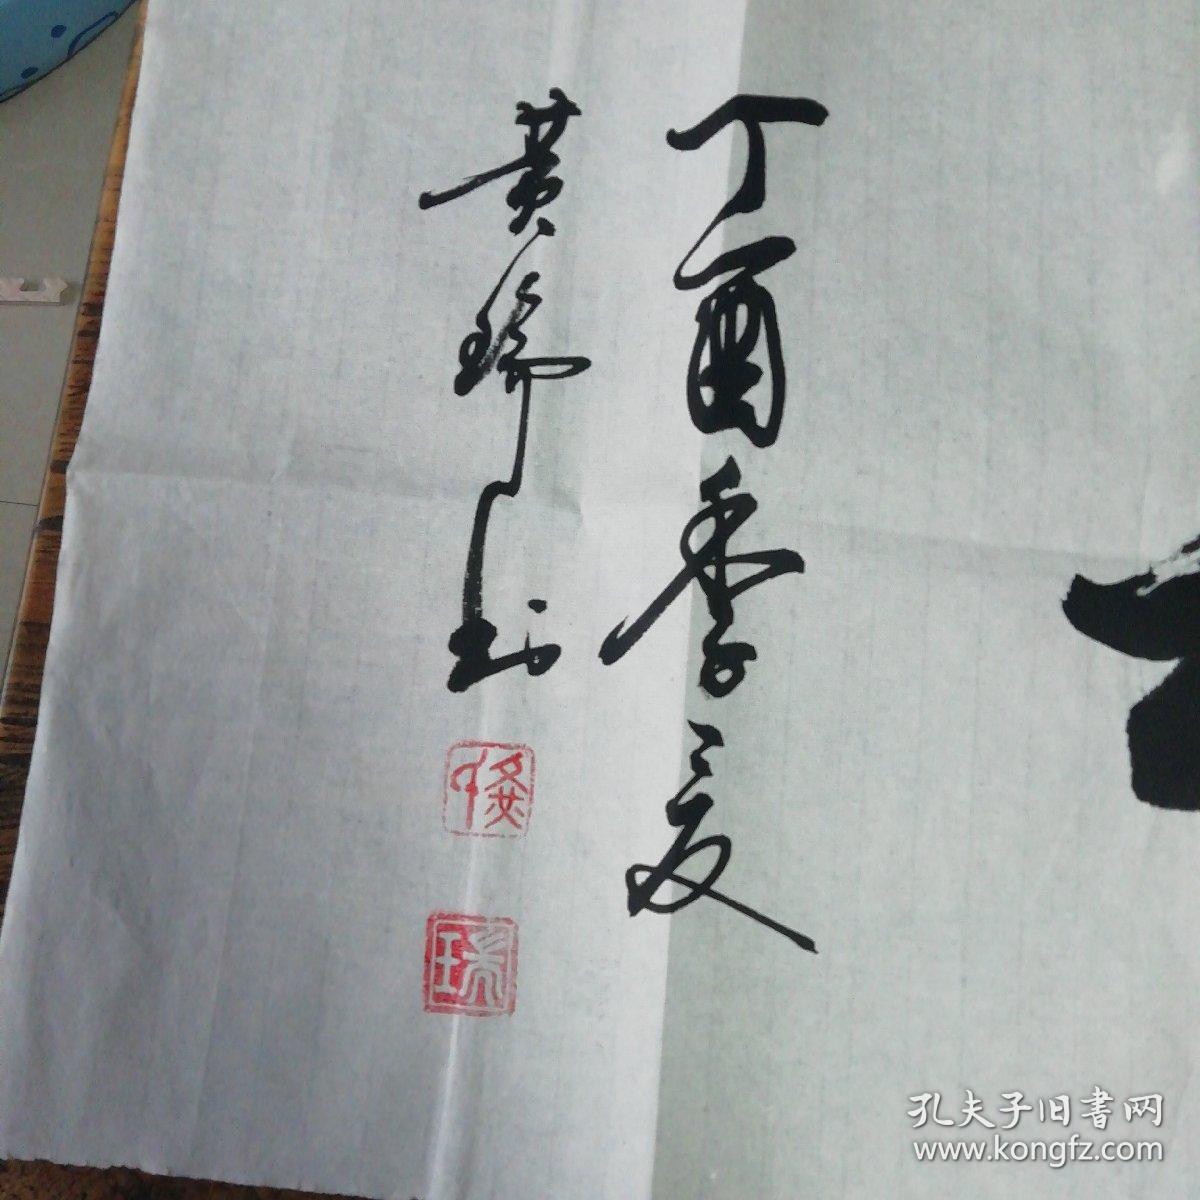 丁酉季夏
黄瑞
瑞
孔夫子旧書网
www.kongfz.com